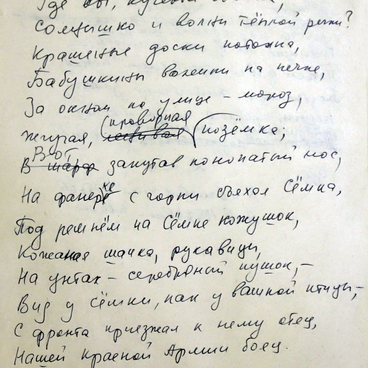 Где вы,
Солнышко и волны тёплой речки?
Крашеные доски потолка,
Бабушкины валенки на печке,
За окном на улице – мороз,
проводная
Жгучая, позёмка;
Вот
В шарф закутав конопатый нос,
На фанерке с горки съехал Сёмка,
Под ремнём на Сёмке кожушок,
Кожаная шапка, рукавицы,
На унтах – серебряный пушок, –
Вид у Сёмки, как у важной птицы, –
С фронта приезжал к нему отец,
Нашей красной Армии боец.